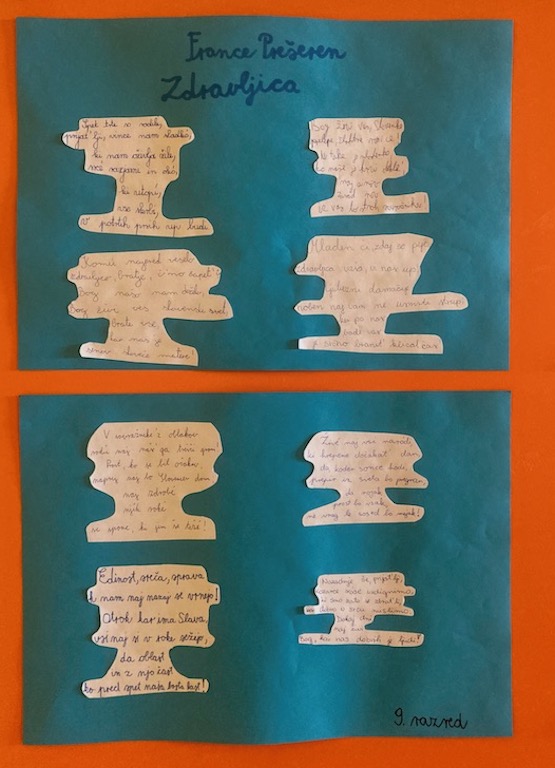 France Prešeren
Zdravljica
Spet trte so rodile,
prijat'lji, vince nam sladkó,
ki nam oživlja žile,
srcé razjasni in oko,
ki utopi,
vse skrbi,
v potrtih prsih up budi
Komú najpred veselo
zdravljico, bratje, č'mo zapet'?
Bog našo nam deželo,
Bog živi ves slovenski svet,
brate vse,
kar nas je
sinov sloveče matere!
Bog živi vas, Slovenke
prelepe, žlahtne
ni take je mladenke
ko naše je krvi dekle
naj
zarod nov
iz vas bo strah sovražnikov!
Mladen'či, zdaj se pije
zdravljica vaša, vi naš up!
ljubezni domačije
noben naj vam ne usmrti strup;
ko po nas
bodi vas
jo srčno branit' kliče čas
V sovražnike 'z oblakov
rodú naj naš'ga treši grom!
Prost, ko je bil očakov,
naprej naj bo Slovencov dom
naj zdrobé
njih roké
si spone, ki jim še težé!
Edinost, sreča, sprava
k nam naj nazaj se vrnejo!
Otrok kar ima Slava,
vsi naj si v roke sežejo,
da oblast
in z njo čast
ko pred spet naša bosta last!
Živé naj vsi naródi
ki hrepene dočakat' dan
da koder sonce hodi,
prepir iz sveta bo pregnan,
da rojak
prost bo vsak,
ne vrag, le sosed bo mejak!
Nazadnje še, prijat'lji,
kozarce zase vzdignimo,
ki smo zato se zbrat'li,
ker dobro v srcu mislimo.
Dokaj dni
naj živi
Bog, kar nas dobrih je ljudi!
9. razred